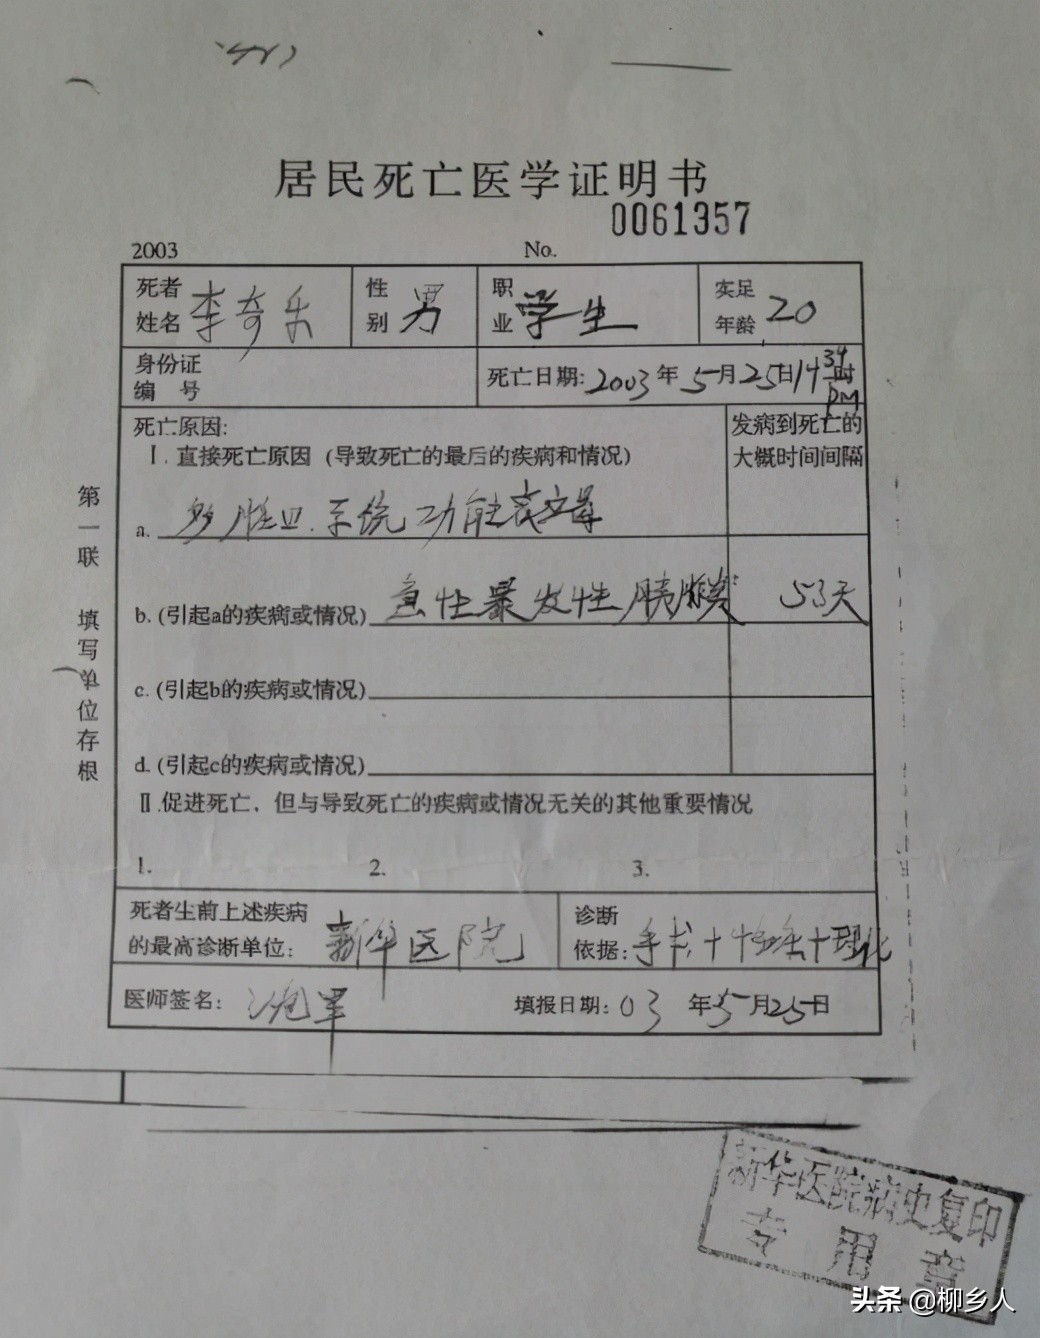 居民死亡医学证明书
0061357
2003 No.
死者姓名 李奇乐 性别 男 职业 学生 实足年龄 20
身份证编号 死亡日期: 2003年5月25日14 34时 PM
死亡原因: 发病到死亡的大概时间间隔
Ⅰ.直接死亡原因(导致死亡的最后的疾病和情况)
a. 多脏 系统功能衰竭
b.(引起a的疾病或情况) 急性暴发性胰腺炎 53天
c.(引起b的疾病或情况)
d.(引起c的疾病或情况)
Ⅱ.促进死亡、但与导致死亡的疾病或情况无关的其他重要情况
1. 2. 3.
死者生前上述疾病的最高诊断单位: 新华医院 诊断依据: 手术+ +理化
医师签名: 填报日期: 03年5月25日
第一联 填写单位存根
新华医院病史复印
专用章
头条 @柳乡人